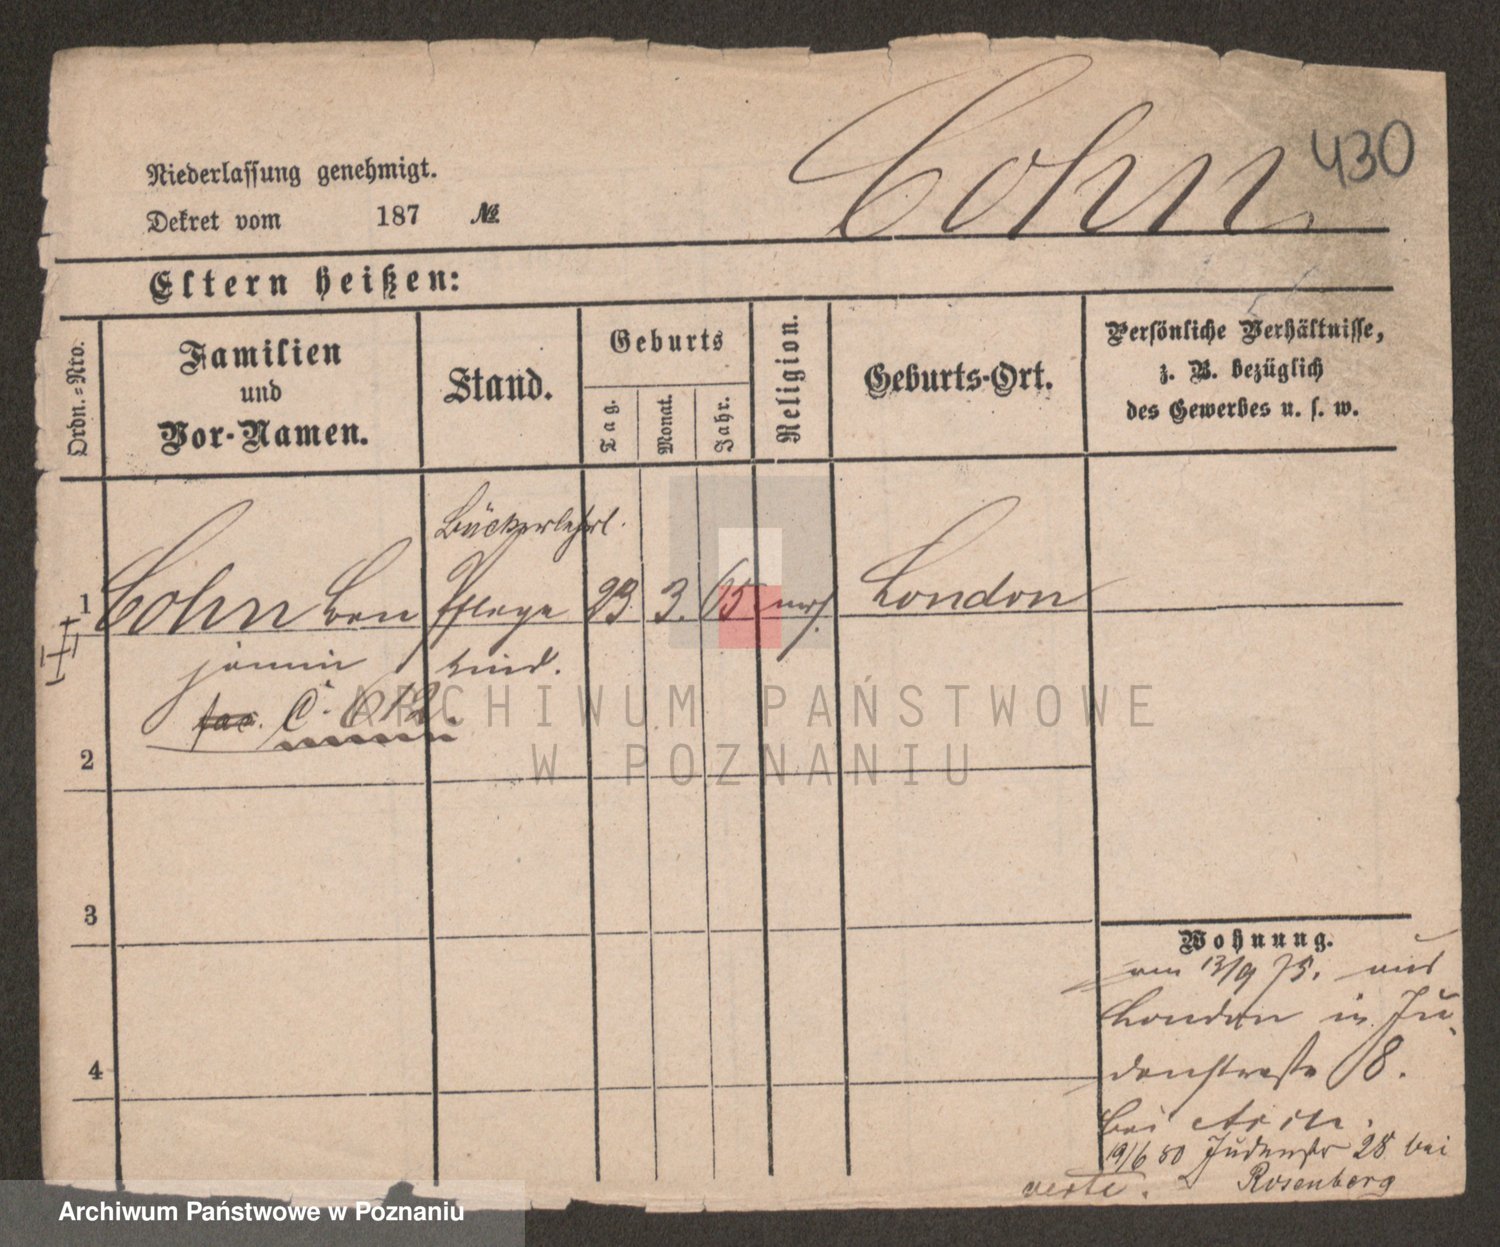 Cohn 430
Niederlassung genehmigt.
Dekret vom 187 №
Eltern heißen:
Ordn.-Nro.
Familien
und
Vor-Namen.
Stand.
Geburts
Tag.
Monat.
Jahr.
Religion.
Geburts-Ort.
Persönliche Verhältnisse,
z. B. bezüglich
des Gewerbes u. s. w.
Bäckerlehrl.
1 Cohn Ben Pflege 23 3. 65 mos. London
jamin kind.
C.
2
3
4
Wohnung.
am 13/9 75. aus
London in Ju
denstraße 8.
bei
19/6 80 Judenstr 28 bei
Rosenberg
verte.
ARCHIWUM PAŃSTWOWE
W POZNANIU
Archiwum Państwowe w Poznaniu